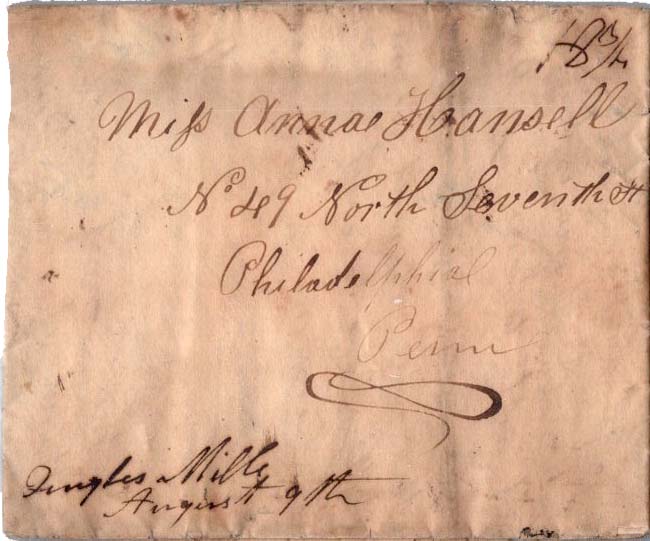 18 3/4
Miss Anna Hansell
No 49 North Seventh St
Philadelphia
Penn
Mills
August 9th